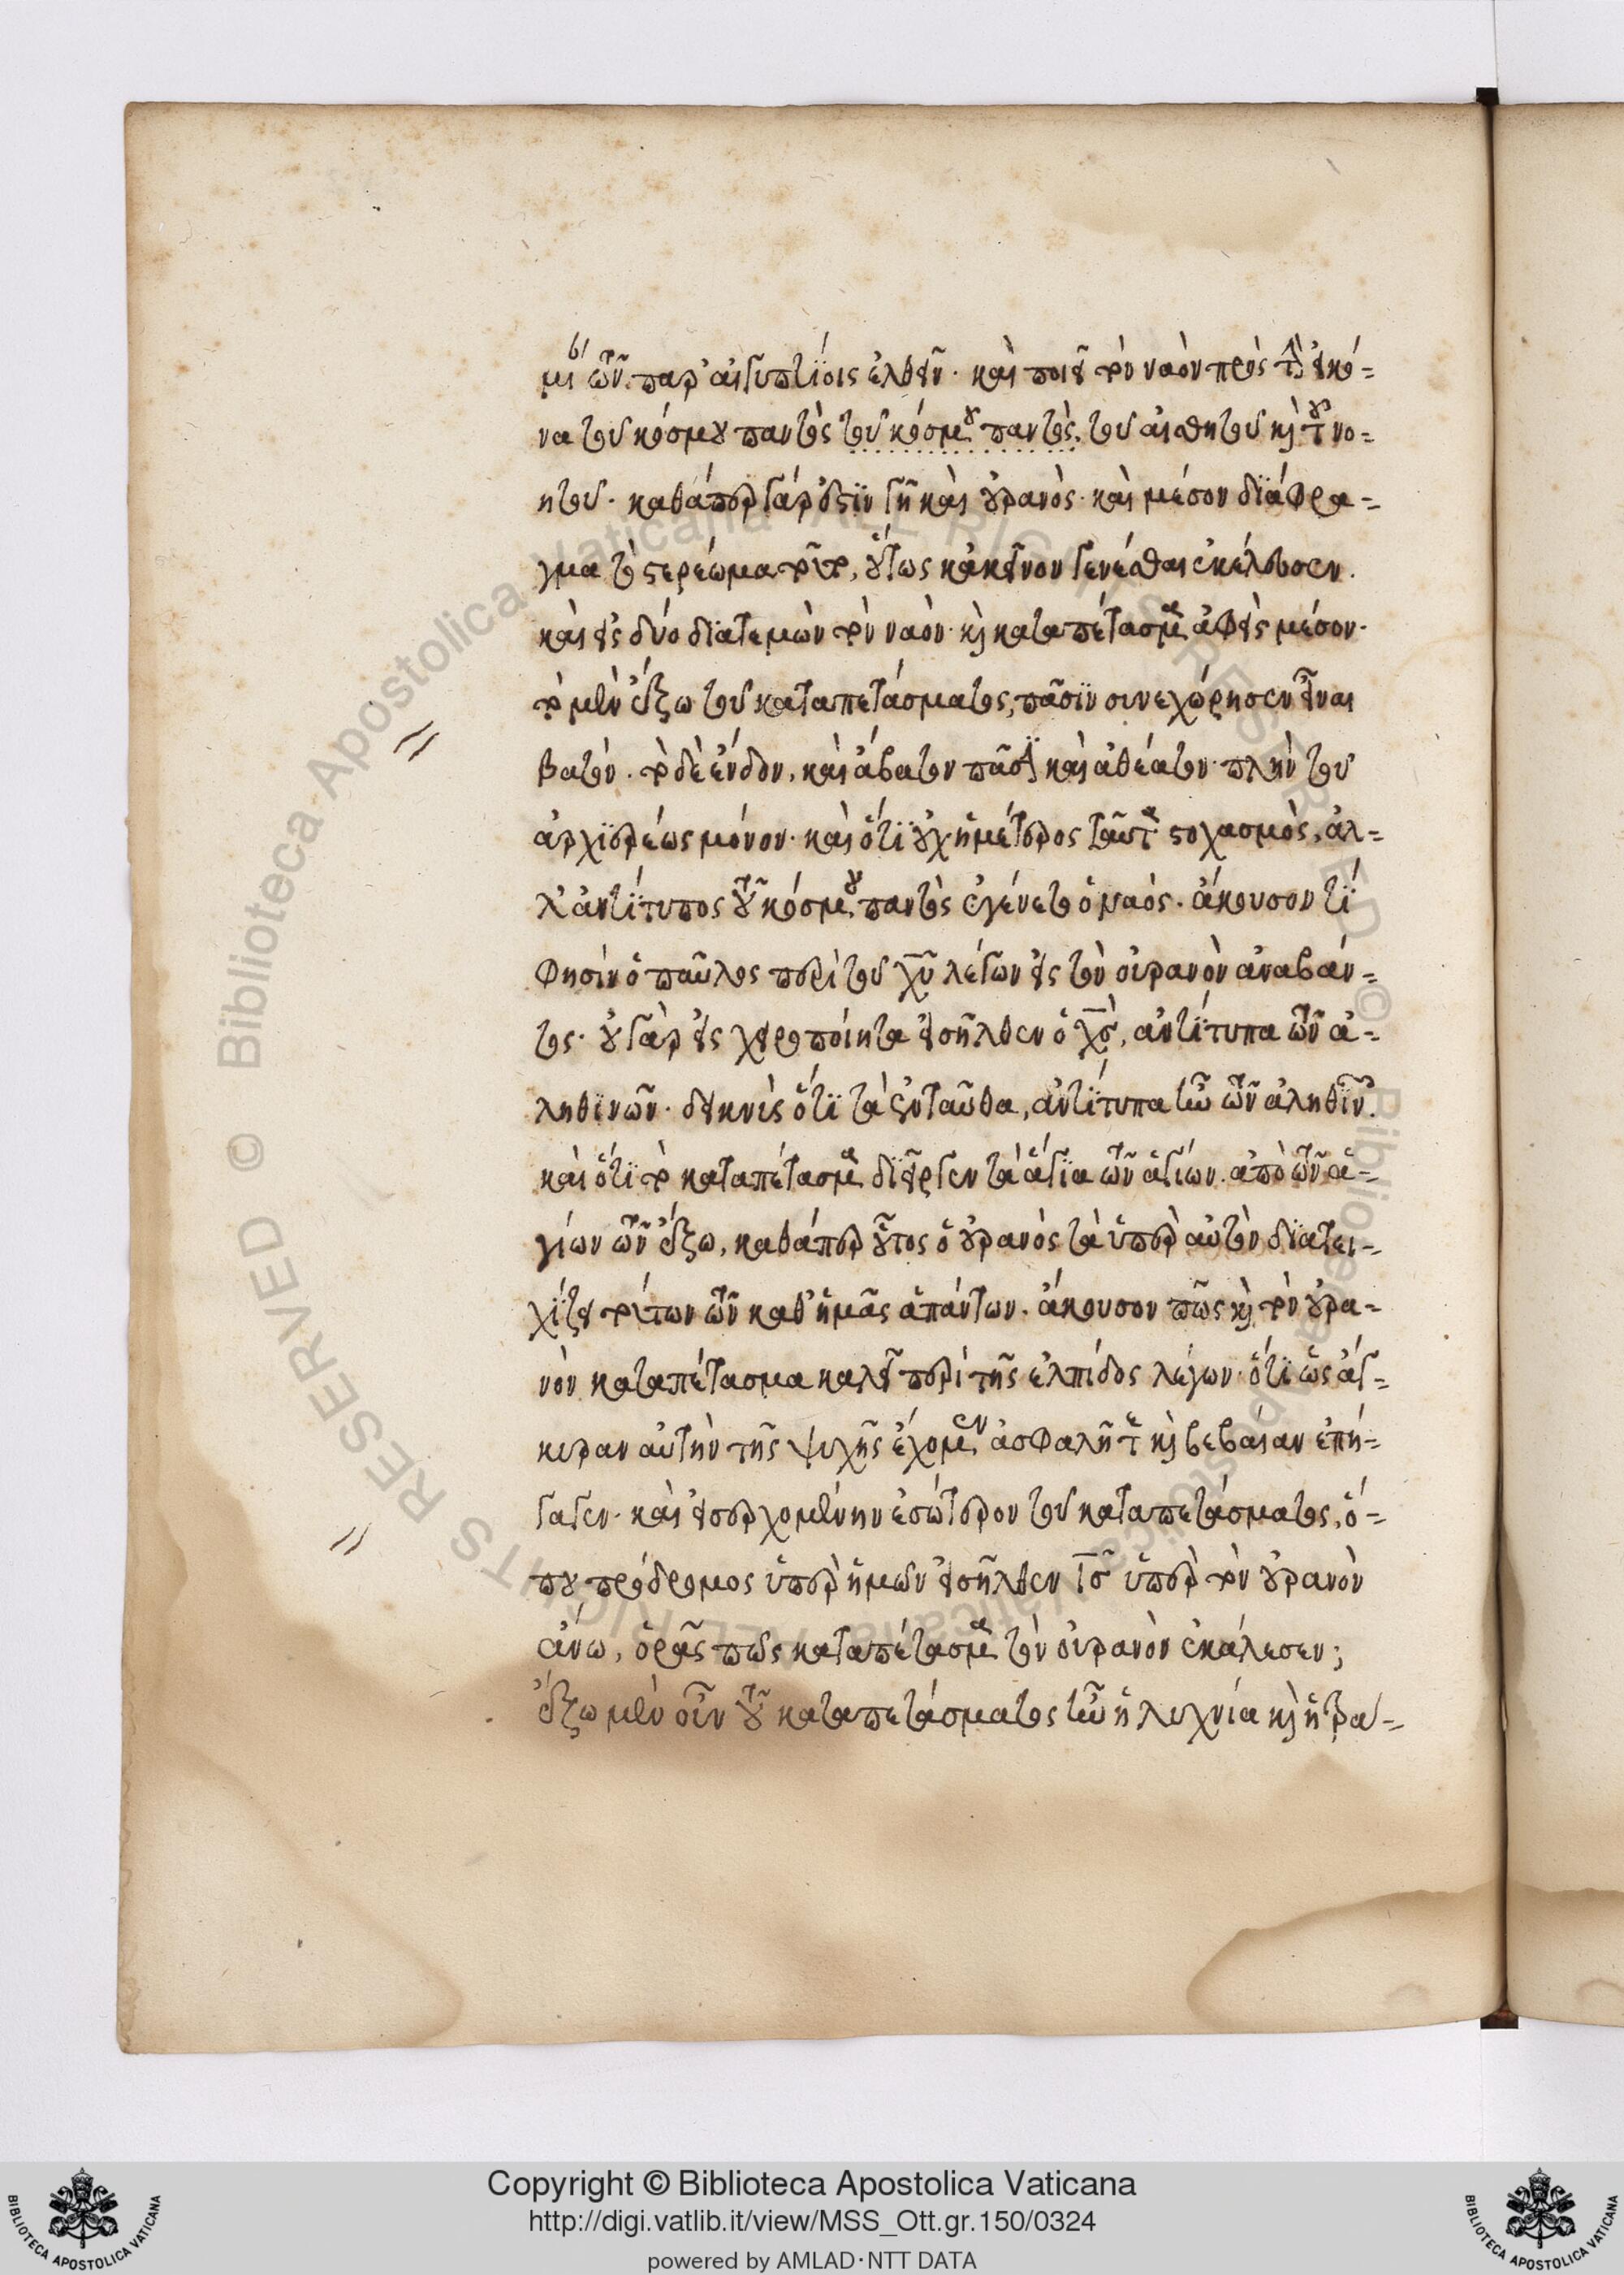 μι τῶν παρ' αἰγυπτίοις ἐλθεῖν· καὶ ποιεῖ τὸν ναὸν πρὸς τὴν εἰκό-
να τοῦ κόσμου παντὸς τοῦ κόσμου παντὸς, τοῦ αἰσθητοῦ καὶ τοῦ νο-
ητοῦ· καθάπερ γάρ ἐστϊν γῆ καὶ οὐρανὸς· καὶ μέσον δϊάφρα-
γμα τὸ στερέωμα τοῦτο, οὕτως κἀκεῖνον γενέσθαι ἐκέλευσεν.
καὶ εἰς δύο δϊατεμὼν τὸν ναόν· καὶ καταπέτασμα ἀφεὶς μέσον·
τὸ μὲν ἔξω τοῦ καταπετάσματος, πᾶσϊν συνεχώρησεν εἶναι
βατόν. τὸ δὲ ἔνδον, καὶ ἄβατον πᾶσϊ καὶ ἀθέατον· πλὴν τοῦ
ἀρχϊερέως μόνον· καὶ ὅτϊ οὐχ ἡμέτερος ταῦτα στοχασμὸς, ἀλ-
λ' ἀντίτυπος τοῦ κόσμου παντὸς ἐγένετο ὁ ναός. ἄκουσον τί
φησὶν ὁ παῦλος περὶ τοῦ χῦ λέγων εἰς τὸν οὐρανὸν ἀναβάν-
τος· οὐ γὰρ εἰς χειροποίητα εἰσῆλθεν ὁ χσ, ἀντίτυπα τῶν ἀ-
ληθϊνῶν· δεικνὺς ὅτϊ τὰ ἐνταῦθα, ἀντίτυπα ἦν τῶν ἀληθϊνῶν.
καὶ ὅτϊ τὸ καταπέτασμα δϊεῖργεν τὰ ἅγϊα τῶν ἁγίων. ἀπὸ τῶν ἁ-
γίων τῶν ἔξω, καθάπερ οὗτος ὁ οὐρανὸς τὰ ὑπὲρ αὐτὸν δϊατει-
χίζει τούτων τῶν καθ' ἡμᾶς ἁπάντων. ἄκουσον πῶς καὶ τὸν οὐρα-
νὸν καταπέτασμα καλεῖ περὶ τῆς ἐλπίδος λέγων· ὅτϊ ὡς ἄγ-
κυραν αὐτὴν τῆς ψυχῆς ἔχομεν ἀσφαλῆ τε καὶ βεβαίαν ἐπή-
γαγεν· καὶ εἰσερχομένην ἐσώτερον τοῦ καταπετάσματος, ὅ-
που πρόδρομος ὑπὲρ ἡμῶν εἰσῆλθεν ἰσ ὑπὲρ τὸν οὐρανὸν
ἄνω, ὁρᾶς πῶς καταπέτασμα τὸν οὐρανὸν ἐκάλεσεν;
ἔξω μὲν οὖν τοῦ καταπετάσματος ἦν ἡ λυχνία καὶ ἡ τρα-
Copyright © Biblioteca Apostolica Vaticana
http://digi.vatlib.it/view/MSS_Ott.gr.150/0324
powered by AMLAD·NTT DATA
BIBLIOTECA APOSTOLICA VATICANA
BIBLIOTECA APOSTOLICA VATICANA